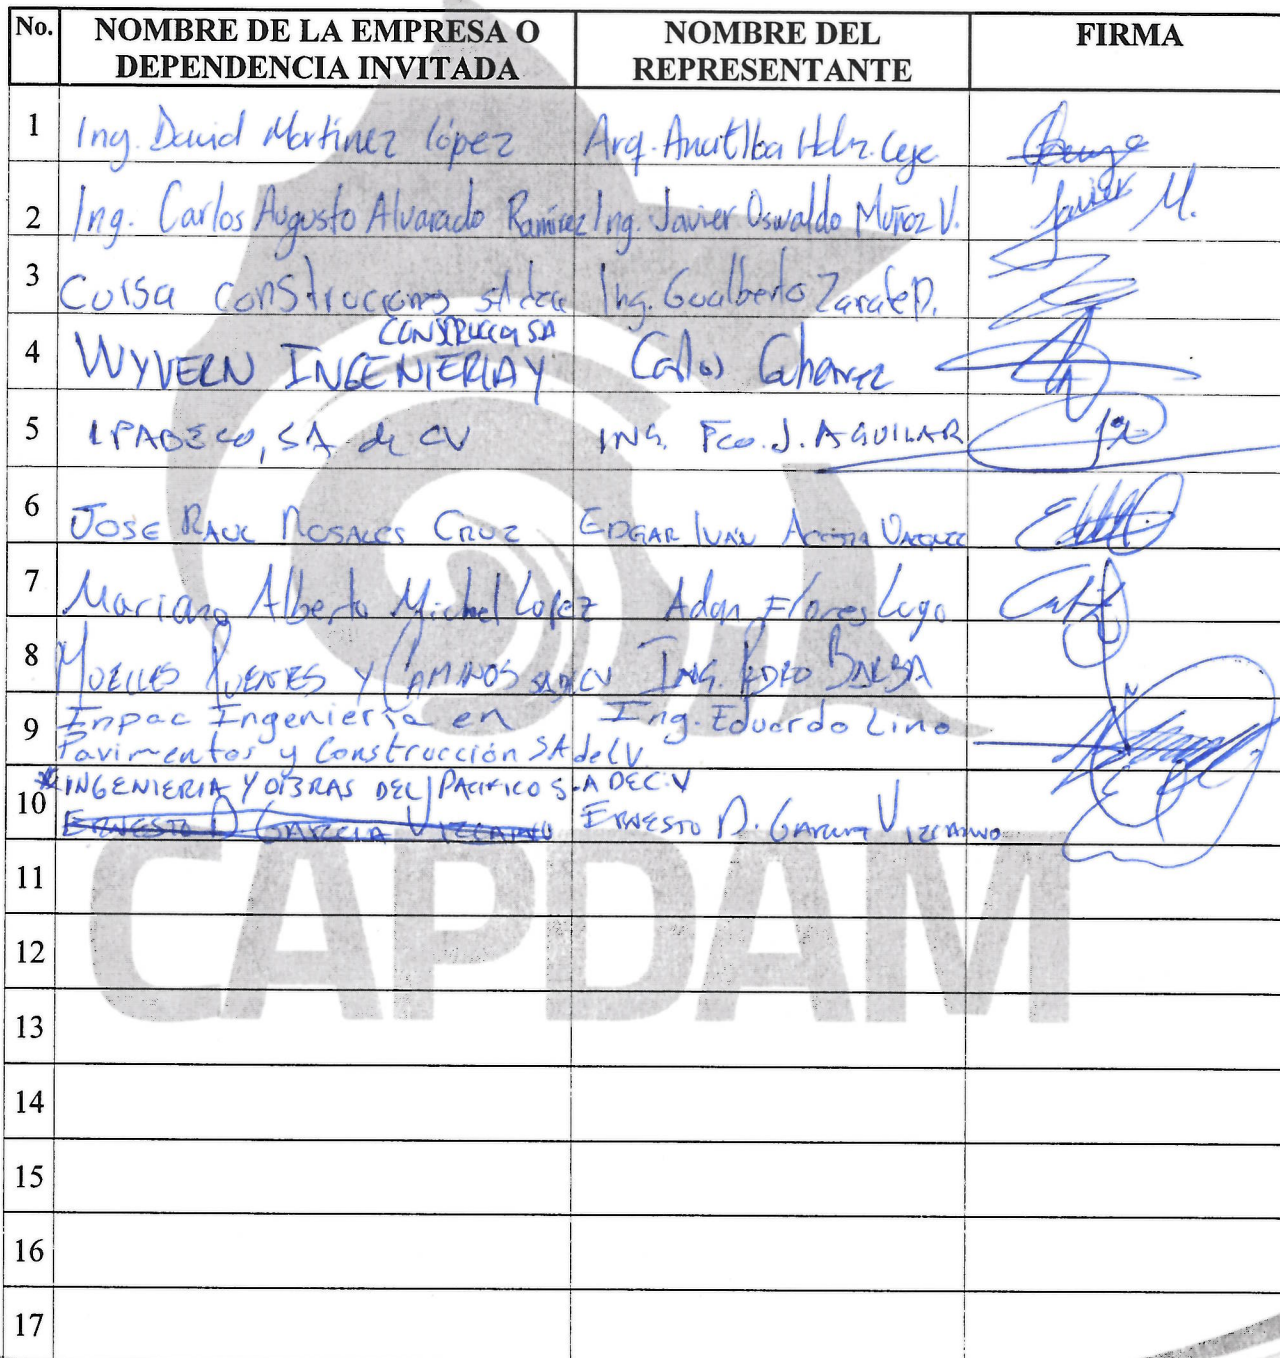 No. NOMBRE DE LA EMPRESA O DEPENDENCIA INVITADA NOMBRE DEL REPRESENTANTE FIRMA
1 Ing. David Martínez lópez Arq.
2 Ing. Carlos Augusto Alvarado Ramírez Ing. Javier Oswaldo Muñoz V. Javier M.
3 construcciones Ing. Gualberto Zarate P.
4 WYVERN INGENIERIA Y CONSTRUCCION SA Carlos
5 SA de CV ING. FCO. J. AGUILAR
6 JOSE RAUL ROSALES CRUZ EDGAR IVÁN
7 Mariano Alberto Michel Lopez Adan Flores Lugo
8 MUELLES PUENTES Y CAMINOS SA DE CV ING. PEDRO BARBA
9 Inpac Ingeniería en Ing. Eduardo Lino
Pavimentos y Construcción SA de CV
10 INGENIERIA Y OBRAS DEL PACIFICO S.A DE C.V
ERNESTO D GARCIA VIZCAINO ERNESTO D. GARCIA VIZCAINO
11
CAPDAM
12
13
14
15
16
17